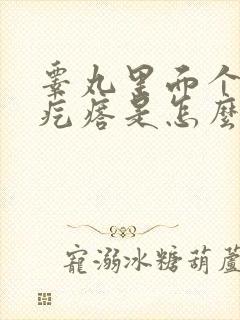 睾丸里面个
疙瘩是怎麼
寵溺冰糖葫蘆